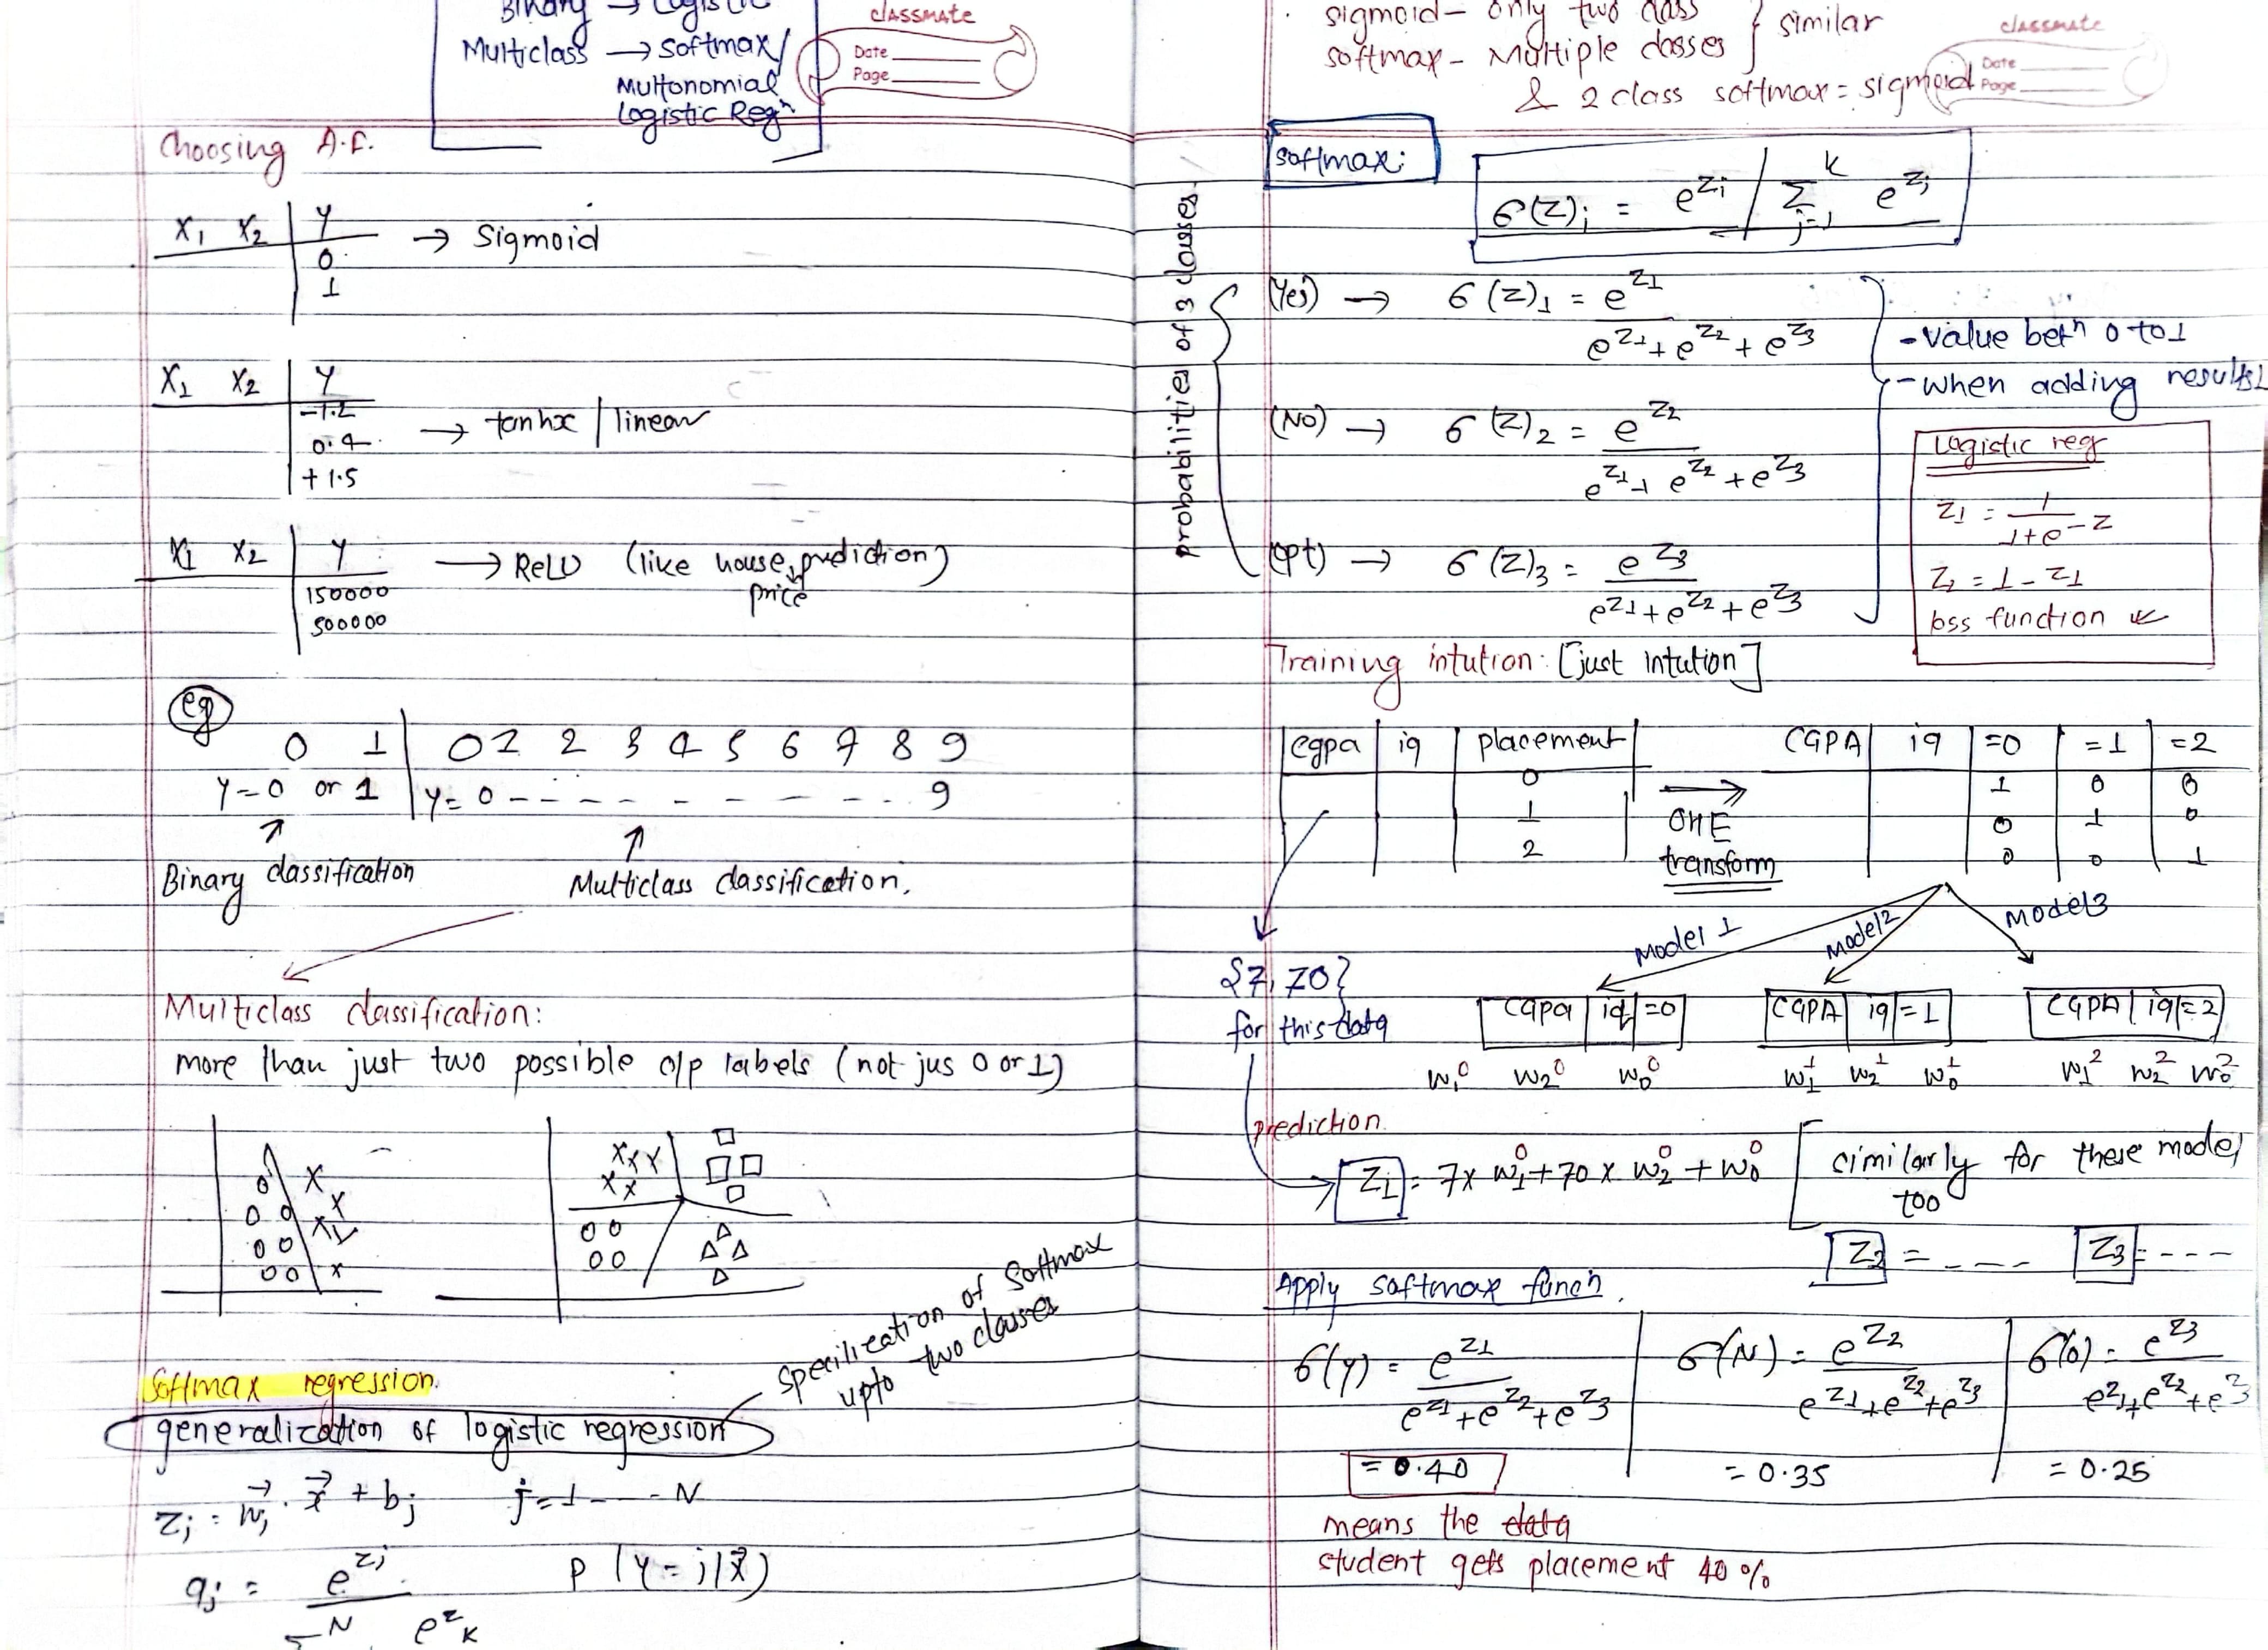 Binary → Logistic
Multiclass → softmax/
Multonomial
Logistic Regn
classmate
Date
Page
Choosing A.F.
X1 X2 | Y → Sigmoid
0
1
X1 X2 | Y
-1.2
0.4 → tanhx | linear
+1.5
X1 X2 | Y → ReLU (like house prediction)
price
150000
500000
eg
0 1 | 0 1 2 3 4 5 6 7 8 9
Y=0 or 1 | Y= 0 - - - - - - - - - 9
Binary classification
Multiclass classification.
Multiclass classification:
more than just two possible o/p labels (not jus 0 or 1)
Softmax regression.
generalization of logistic regression
specilization of softmax
upto two classes
zj = wj . x + bj j=1 - - - N
aj = e^zj P(y=j|x)
N e^zk
sigmoid- only two class
softmax- Multiple classes } similar
& 2 class softmax = sigmoid
classmate
Date
Page
softmax:
σ(z)i = e^zi / Σ j=1 k e^zj
probabilities of 3 classes.
(Yes) → σ(z)1 = e^z1 / e^z1 + e^z2 + e^z3
(No) → σ(z)2 = e^z2 / e^z1 + e^z2 + e^z3
(opt) → σ(z)3 = e^z3 / e^z1 + e^z2 + e^z3
- value betn 0 to 1
- when adding results 1
Logistic regr
z1 = 1 / 1+e^-z
z2 = 1 - z1
loss function
Training intution: [just intution]
cgpa | iq | placement
0
1
2
OHE
transform
CGPA | iq | =0 | =1 | =2
1 0 0
0 1 0
0 0 1
Model 1
Model 2
Model 3
{7, 70}
for this data
cgpa | iq | =0
CGPA | iq | = 1
CGPA | iq | = 2
w1^0 w2^0 w0^0
w1^1 w2^1 w0^1
w1^2 w2^2 w0^2
prediction.
z1 = 7 x w1^0 + 70 x w2^0 + w0^0
similarly for these model
too
z2 = - - - z3 = - - -
Apply softmax funcn.
σ(y) = e^z1 / e^z1 + e^z2 + e^z3
σ(N) = e^z2 / e^z1 + e^z2 + e^z3
σ(o) = e^z3 / e^z1 + e^z2 + e^z3
= 0.40
= 0.35
= 0.25
means the data
student gets placement 40%